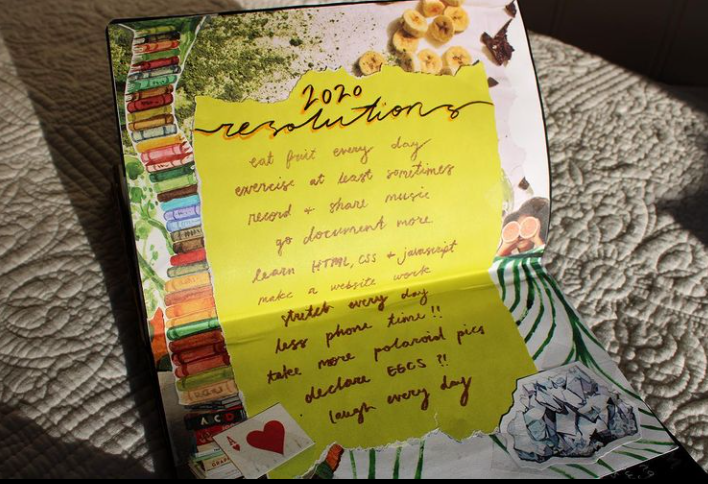 2020
resolutions
eat fruit every day
exercise at least sometimes
record + share music
go document more
learn HTML, CSS + javascript
make a website work
stretch every day
less phone time !!
take more polaroid pics
declare EECS !!
laugh every day
A